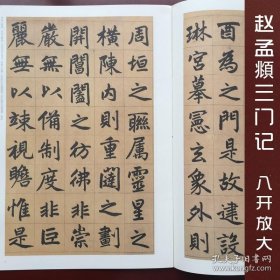 赵孟頫三门记 八开放大
酉為之門是故建設
琳宮摹憲玄象外則
周垣之聯屬靈星之
橫陳內則重闥之劃
開閶闔之彷彿非崇
嚴無以備制度非巨
麗無以竦視瞻惟是